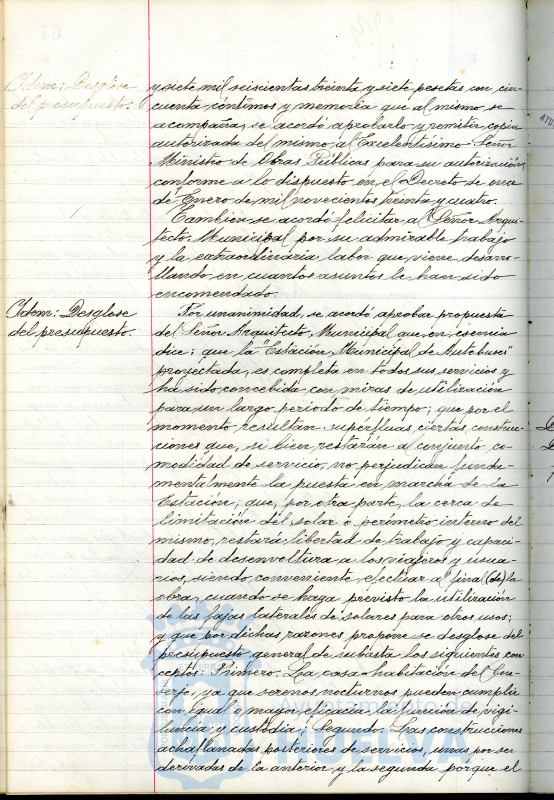 Idem: Desglose
del presupuesto.
y siete mil seiscientas treinta y siete pesetas con cin-
cuenta céntimos y memoria que al mismo se
acompaña, se acordó aprobarlo y remitir copia
autorizada del mismo al Excelentísimo Señor
Ministro de Obras Públicas para su autorización,
conforme a lo dispuesto en el Decreto de once
de Enero de mil novecientos treinta y cuatro.
También se acordó felicitar al Señor Arqui-
tecto Municipal por su admirable trabajo
y la extraordinaria labor que viene desarro-
llando en cuantos asuntos le han sido
encomendado.
Idem: Desglose
del presupuesto.
Por unanimidad, se acordó aprobar propuesta
del Señor Arquitecto Municipal que en esencia
dice: que la "Estación Municipal de Autobuses"
proyectada, es completa en todos sus servicios y
ha sido concebida con miras de utilización
para un largo periodo de tiempo; que por el
momento resultan supérfluas ciertas construc-
ciones que, si bien restarán al conjunto co-
modidad de servicio, no perjudican funda-
mentalmente la puesta en marcha de la
Estación; que, por otra parte, la cerca de
limitación del solar o perimetro interno del
mismo, restaría libertad de trabajo y capaci-
dad de desenvoltura a los viajeros y usua-
rios, siendo conveniente efectuar al final (de) la
obra, cuando se haya previsto la utilización
de las fajas laterales de solares para otros usos;
y que por dichas razones propone se desglose del
presupuesto general de subasta los siguientes con-
ceptos: Primero. La casa habitación del Con-
serje, ya que serenos nocturnos pueden cumplir
con igual o mayor eficacia la función de vigi-
lancia y custodia; Segundo. Las construcciones
achaflanadas posteriores de servicios, unas por ser
derivadas de la anterior y la segunda porque el
HUELVA